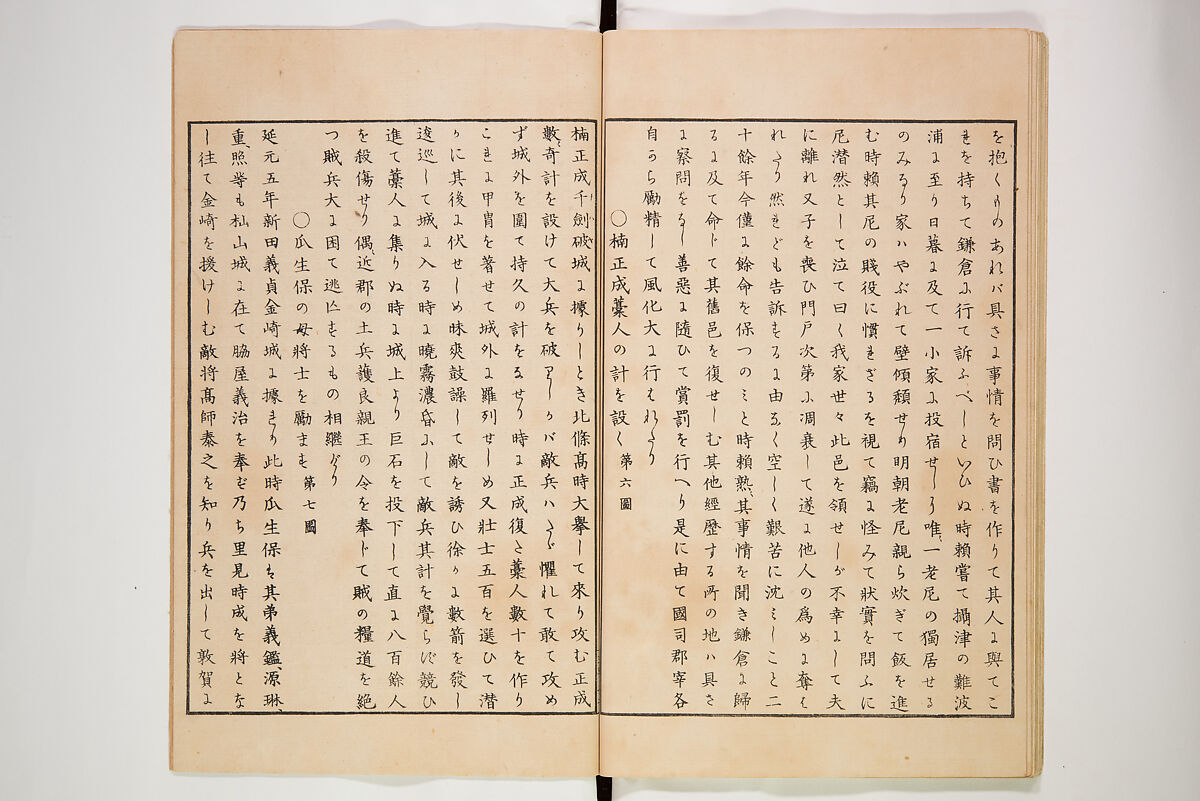 を抱くものあれバ具さに事情を問ひ書を作りて其人に與てこ
れを持ちて鎌倉に行て訴ふべしといひぬ時賴嘗て攝津の難波
浦に至り日暮に及て一小家に投宿せしに唯、一老尼の獨居せる
のみなり家ハやぶれて壁傾頽せり明朝老尼親ら炊ぎて飯を進
む時賴其尼の賤役に慣れざるを視て竊に怪みて狀實を問ふに
尼潜然として泣て曰く我家世々此邑を領せしが不幸にして夫
に離れ又子を喪ひ門戸次第に凋衰して遂に他人の爲めに奪は
れたり然れども告訴するに由なく空しく艱苦に沈ミしこと二
十餘年今僅に餘命を保つのミと時賴熟、其事情を聞き鎌倉に歸
るに及て命じて其舊邑を復せしむ其他經歷する所の地ハ具さ
に察問をなし善惡に隨ひて賞罰を行へり是に由て國司郡宰各
自から勵精して風化大に行はれたり
〇楠正成藁人の計を設く 第六圖
楠正成千劍破城に據りしとき北條高時大擧して來り攻む正成
數、奇計を設けて大兵を破りしかバ敵兵ハたゞ懼れて敢て攻め
ず城外を圍て持久の計をなせり時に正成復た藁人數十を作り
これに甲冑を著せて城外に羅列せしめ又壯士五百を選ひて潜
かに其後に伏せしめ昧爽鼓譟して敵を誘ひ徐かに數箭を發し
逡巡して城に入る時に曉霧濃昏にして敵兵其計を覺らず競ひ
進て藁人に集りぬ時に城上より巨石を投下して直に八百餘人
を殺傷せり偶、近郡の土兵護良親王の令を奉じて賊の糧道を絶
つ賊兵大に困て逃亡するもの相繼げり
〇瓜生保の母將士を勵ます 第七圖
延元五年新田義貞金崎城に據れり此時瓜生保は其弟義鑑、源琳、
重、照等も杣山城に在て脇屋義治を奉ぜ乃ち里見時成を將とな
し往て金崎を援けしむ敵將髙師泰之を知り兵を出して敦賀に